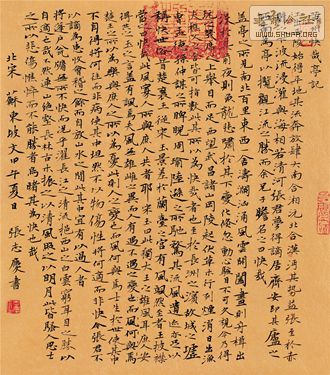 快哉亭記
始得平地其流奔放肆大南合湘沅北合漢沔其勢益張至於赤
波流浸灌與海相若清河張君夢得謫居齊安即其廬之
為亭以覽觀江流之勝而余兄子瞻名之曰快哉
蓋亭之所見南北百里東西一舍濤瀾洶湧風雲開闔晝則舟楫出
沒於其前夜則魚龍悲嘯於其下變化倏忽動心駭目不可久視今乃得
玩之几席之上舉目而足西望武昌諸山岡陵起伏草木行列煙消日出漁
夫樵父之舍皆可指數此其所以為快哉者也至於長洲之濱故城之墟
曹孟德孫仲謀之所睥睨周瑜陸遜之所馳騖其流風遺跡亦足以
稱快世俗昔楚襄王從宋玉景差於蘭臺之宮有風颯然至者王披襟
當之曰快哉此風寡人所以與庶人共者耶宋玉曰此獨大王之雄風耳庶人安
得共之玉之言蓋有諷焉夫風無雄雌之異而人有遇不遇之變楚王
之所以為樂與庶人之所以為憂此則人之變也而風何與焉士生於世使其中
不自得將何往而非病使其中坦然不以物傷性將何適而非快今張君不
以謫為患收會稽之餘而自放山水之間此其中宜有以過人者
將蓬戶甕牖無所不快而況乎濯長江之清流挹西山之白雲窮耳目之勝以
自適也哉不然連山絕壑長林古木振之以清風照之以明月此皆騷人思士
之所以悲傷憔悴而不能勝者烏睹其為快也哉
北宋 蘇東坡文 甲午夏日 張志慶書